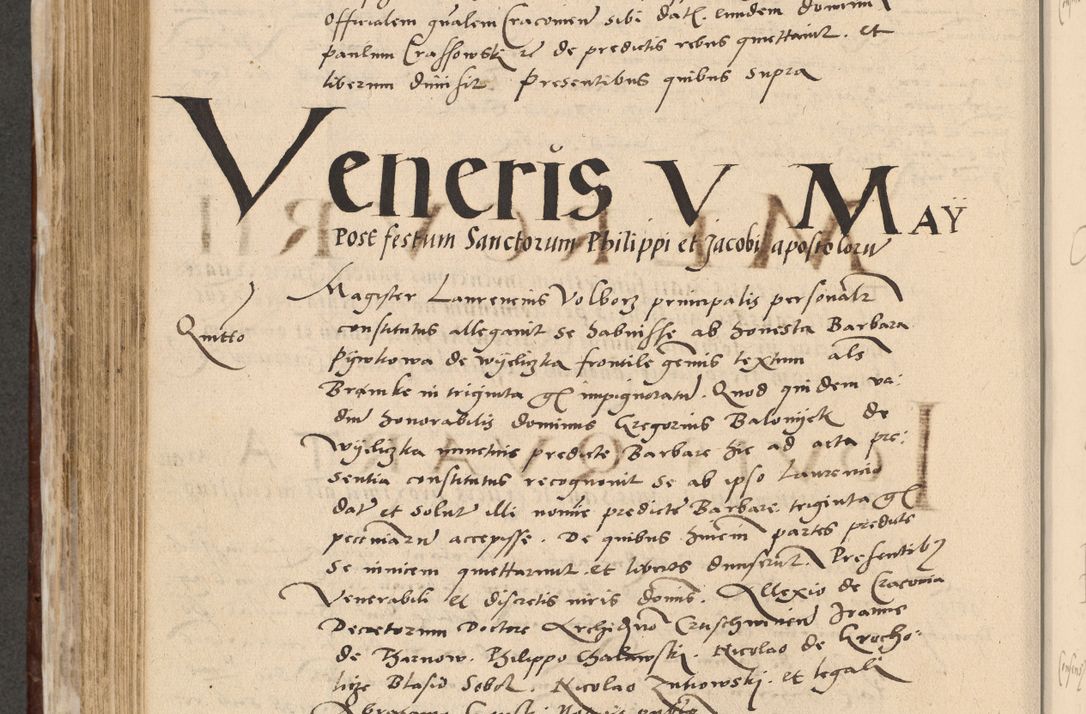 Officialem gñalem Cracovien̄ sibi dat̄. eundem dominū
paulum Crassowski re de predictis rebus quettavit. et
liberum dimisit presentibus quibus supra
Veneris V MAӰ
Post festum Sanctorum Philippi et Jacobi apostolorū
Magister Laurencius Volborz principalis personalr̄
Quitto
constitutus allegavit se habuisse ab honesta Barbara
de Wyeliczka frontile textum als
Bramke in triginta impignoratam. Quod qui dem va:
diū honorabilis dominus Gregorius de
Wyeliczka predicte Barbare hic ad acta pre:
sentia constitutus recognovit se ab ipso Laurencio
dat̄ et solut̄ illi noīe predicte Barbare. triginta
pecuniarū accepisse. De quibus partes predicte
se invicem quettarunt. et liberos dimiserunt. Presentibꝫ
Venerabili et discretis viris domīs. Allexio de Cracovia
Decretorum Doctore Archidÿno Cruschwicien̄ Joanne
de Tharnow. Philippo Nicolao de Grocho:
licze Blasio Sobol. Nicolao Zutiowski. et legali